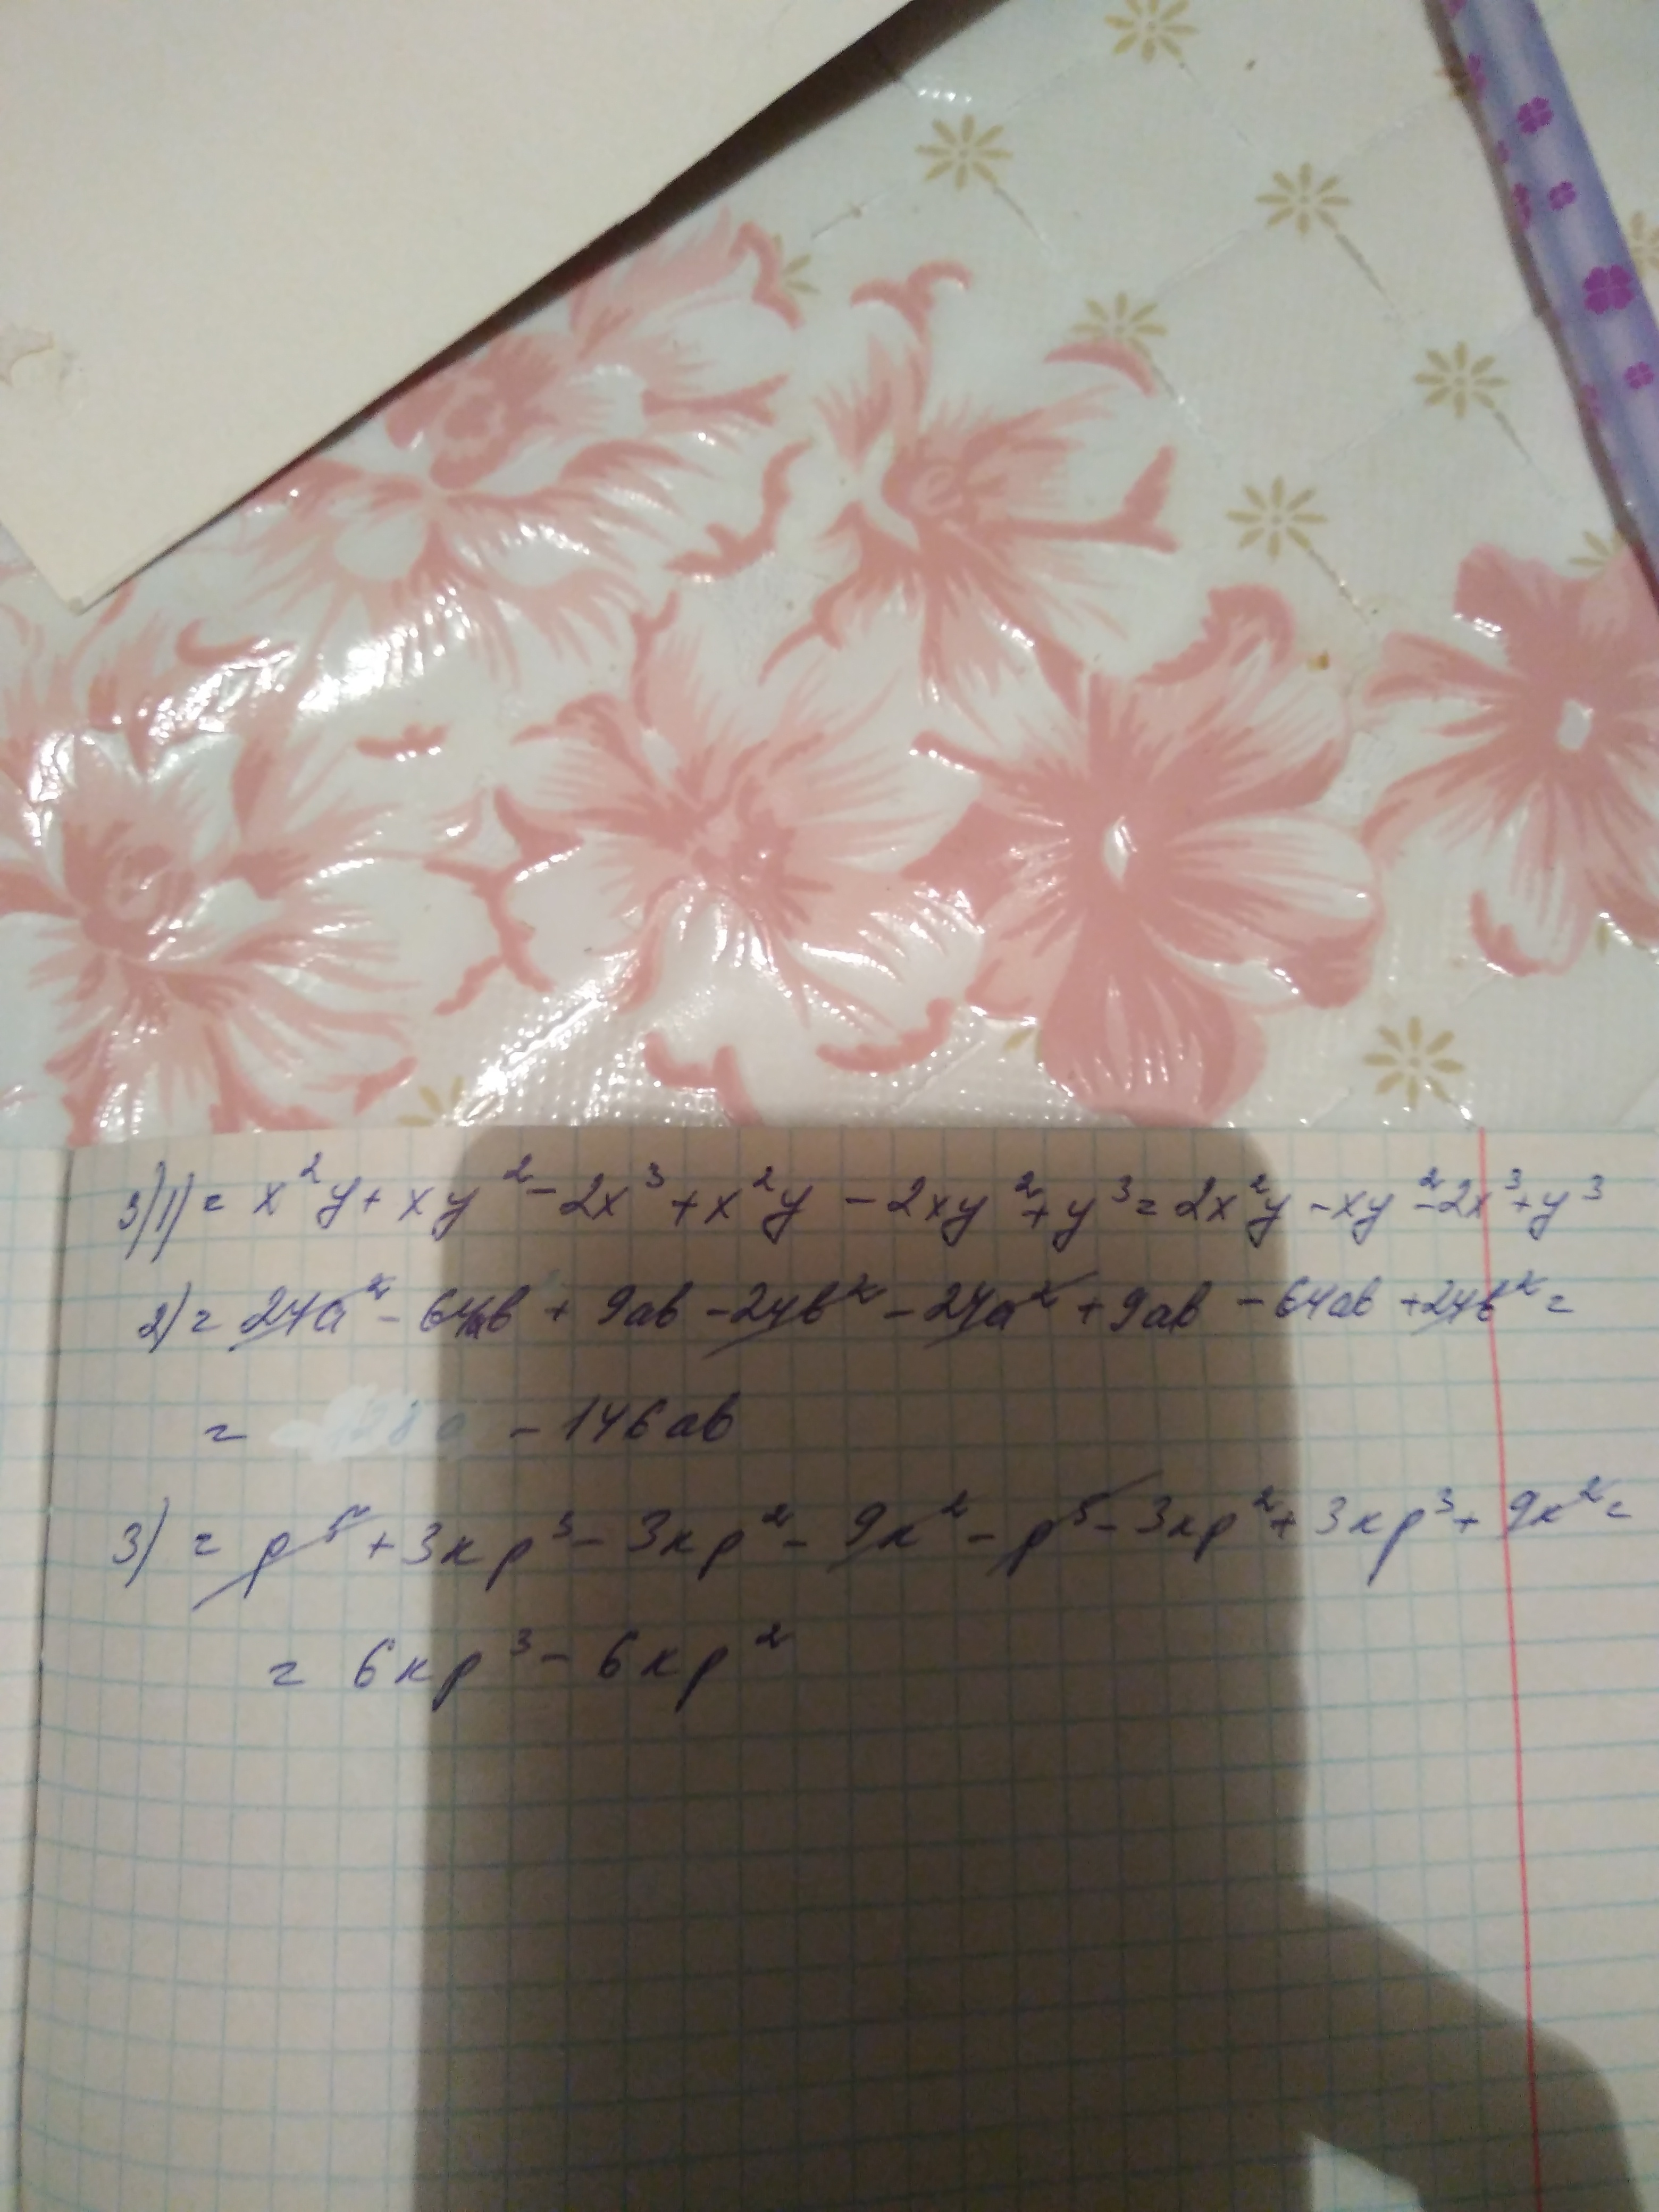 3)1)= x²y + xy² - 2x³ + x²y - 2xy² + y³ = 2x²y - xy² - 2x³ + y³
2) = 24a² - 64ab + 9ab - 24b² - 24a² + 9ab - 64ab + 24b² =
= - 146ab
3) = p⁵ + 3kp³ - 3kp² - 9k² - p⁵ - 3kp² + 3kp³ + 9k² =
= 6kp³ - 6kp²